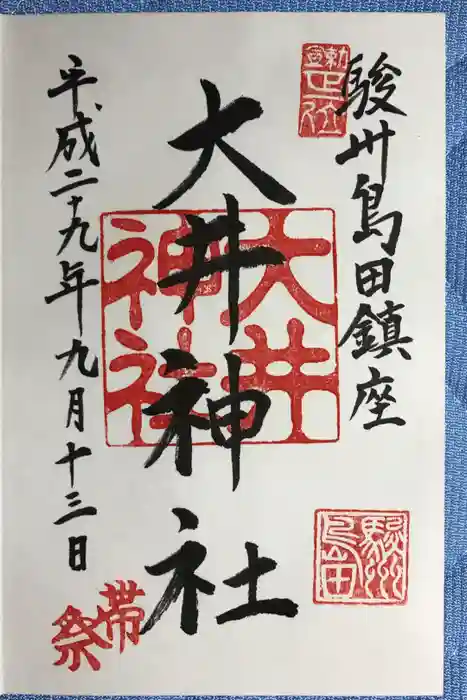 駿州島田鎮座
勅宣正一位
駿州島田
大井神社
大井神社
平成二十九年九月十三日
帯祭